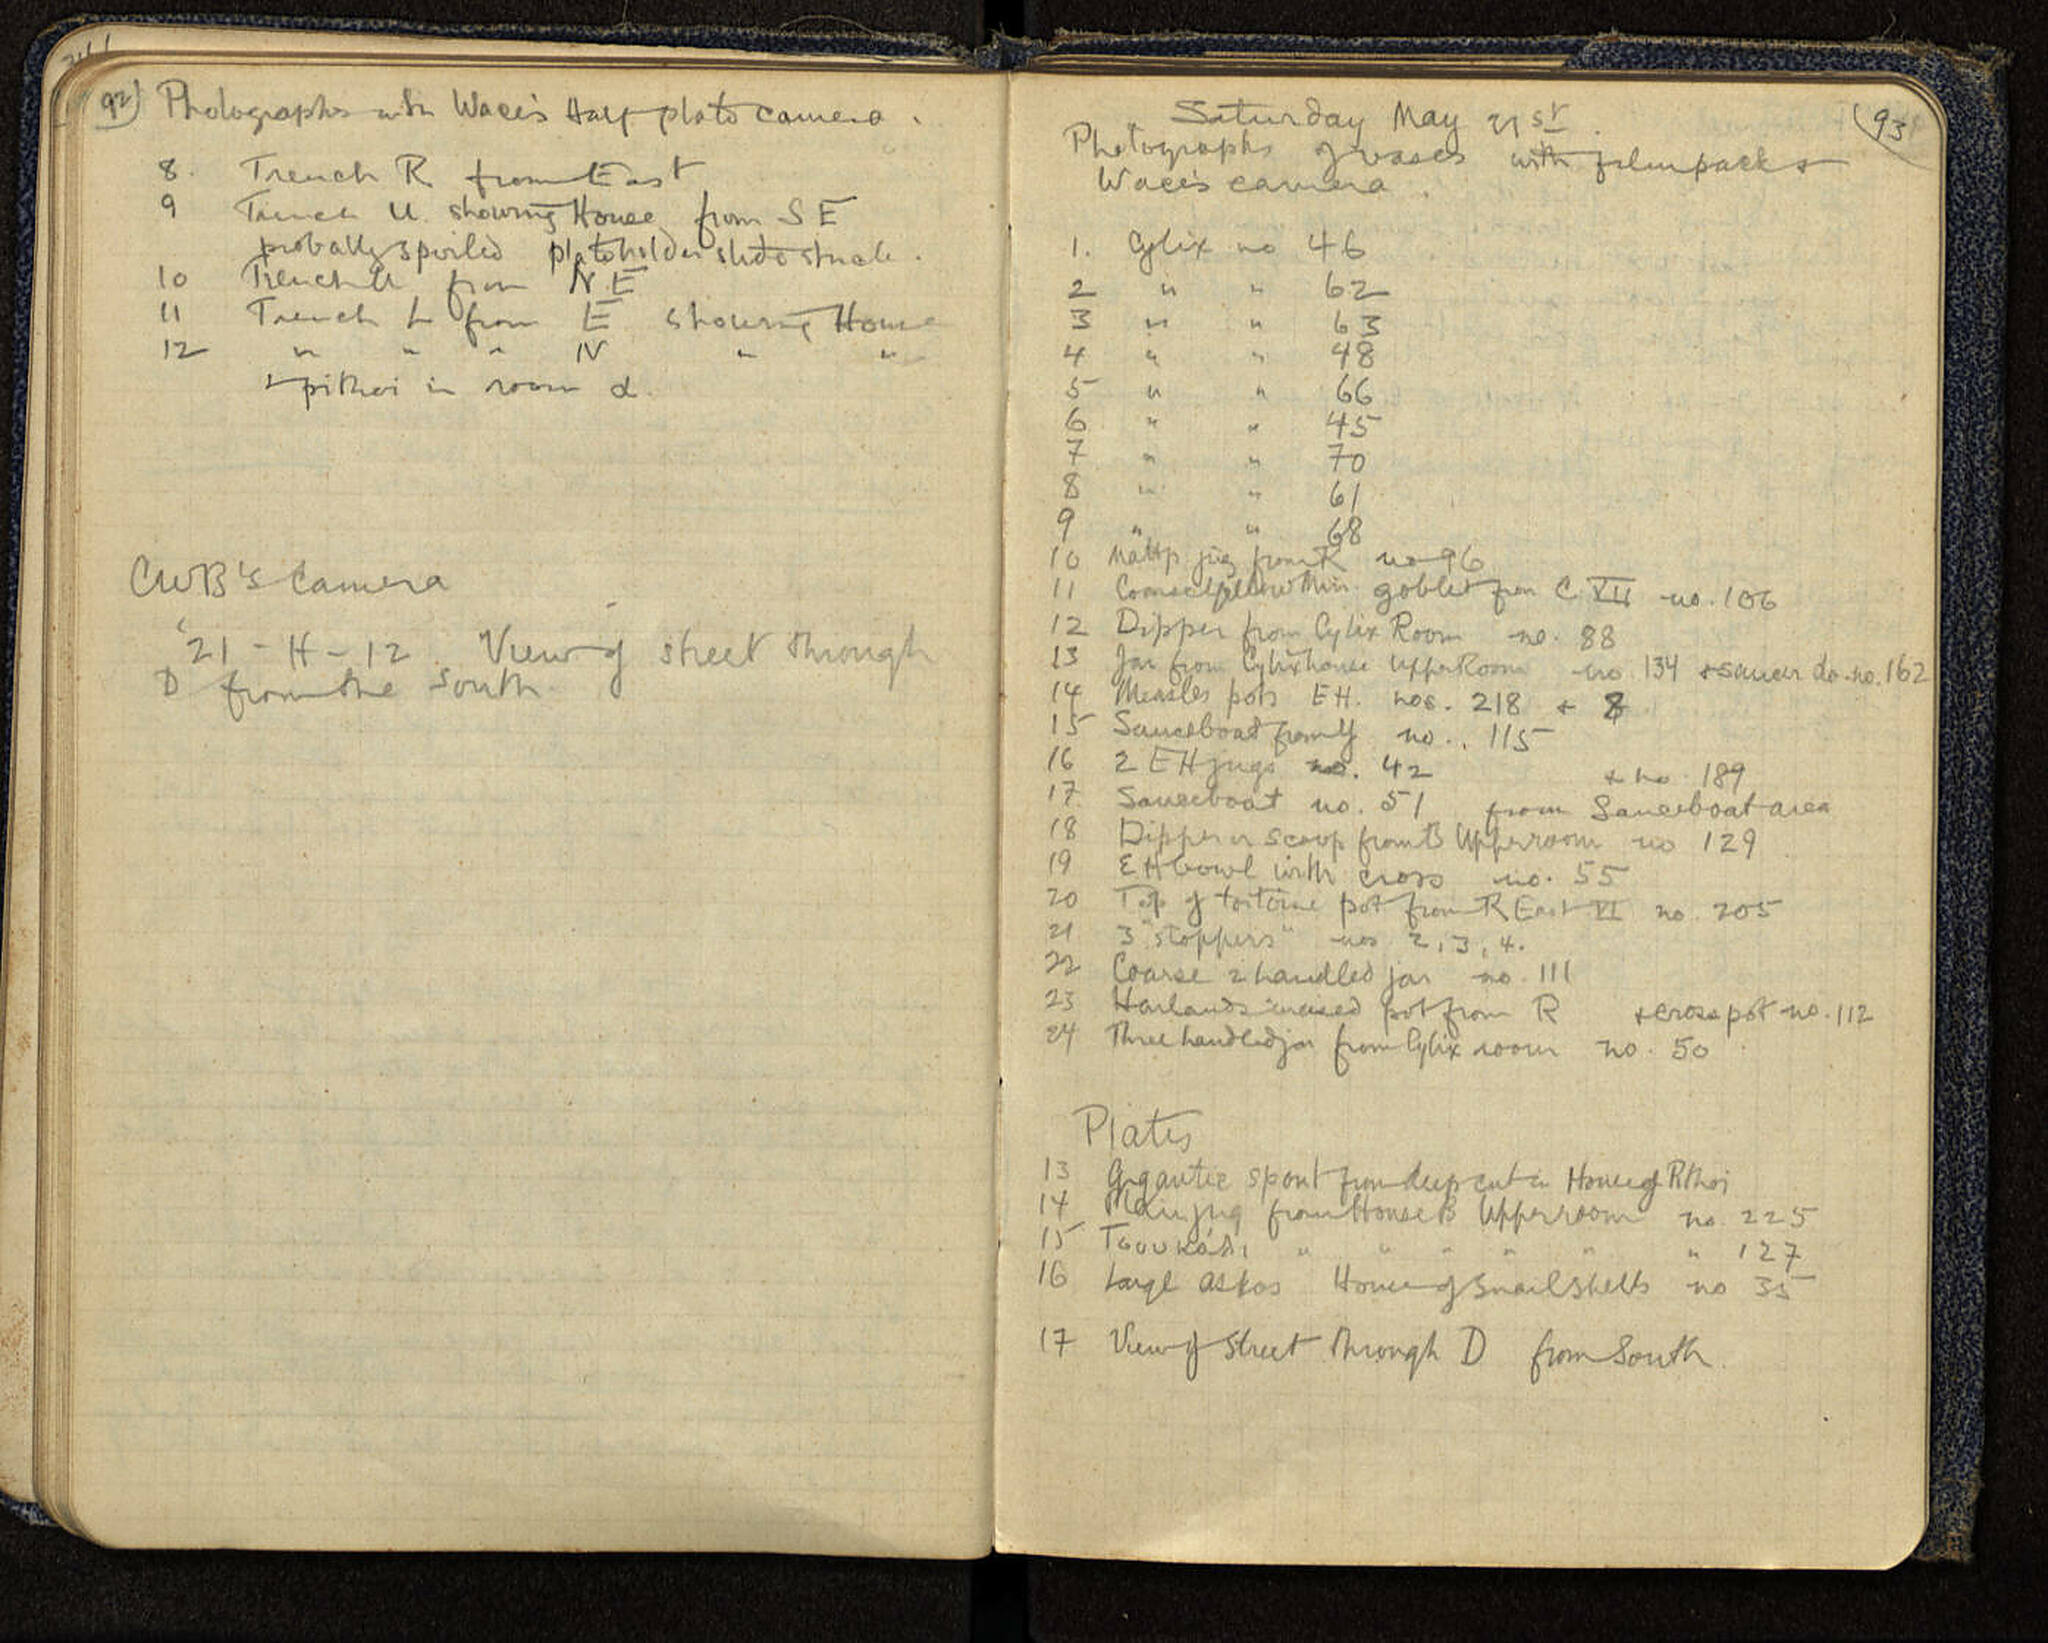 92) Photographs with Wace's Half plate camera.
8. Trench R from East
9 Trench U showing House from S E
probably spoiled plateholder slide stuck.
10 Trench U from N.E
11 Trench L from E showing House
12 " " " N " "
+ pithoi in room α
CWB's camera
'21 - H - 12 View of street through
D from the South
(93
Saturday May 21st.
Photographs of vases with filmpack &
Wace's camera.
1. Cylix no 46
2 " " 62
3 " " 63
4 " " 48
5 " " 66
6 " " 45
7 " " 70
8 " " 61
9 " " 68
10 Mattp jug from R no 96
11 goblet from C VII no. 106
12 Dipper from Cylix Room no. 88
13 Jar from Cylix house Upper Room no. 134 + saucer do no. 162
14 Measles pots EH. nos. 218 + 8
15 Sauceboat from Y no. 115
16 2 EH jugs no. 42 + no. 189
17 Sauceboat no. 51 from Sauceboat area
18 Dipper or scoop from B Upper room no 129
19 EH bowl with cross no. 55
20 Top of tortoise pot from R East VI no. 205
21 3 "stoppers" nos 2, 3, 4.
22 Coarse 2 handled jar no. 111
23 Harland's incised pot from R + cross pot no. 112
24 Three handled jar from Cylix room no. 50
Plates
13 Gigantic spout from deep cut in House of Pithoi
14 Plain jug from House B Upper room no. 225
15 Τσουκάλι " " " " " " 127
16 Large askos House of Snail Shells no 35
17 View of street through D from South.